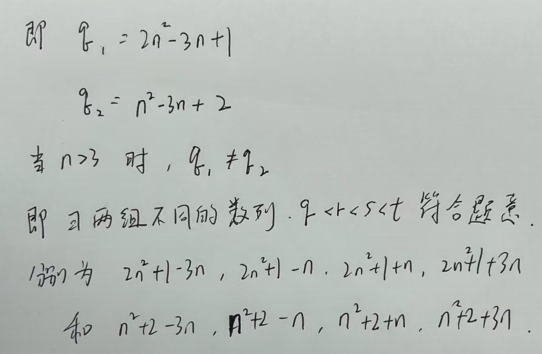 即 q₁ = 2n²-3n+1
q₂ = n²-3n+2
当 n>3 时, q₁ ≠ q₂
即 ∃ 两组不同的数列. q<r<s<t 符合题意.
分别为 2n²+1-3n, 2n²+1-n. 2n²+1+n, 2n²+1+3n
和 n²+2-3n, n²+2-n, n²+2+n, n²+2+3n.